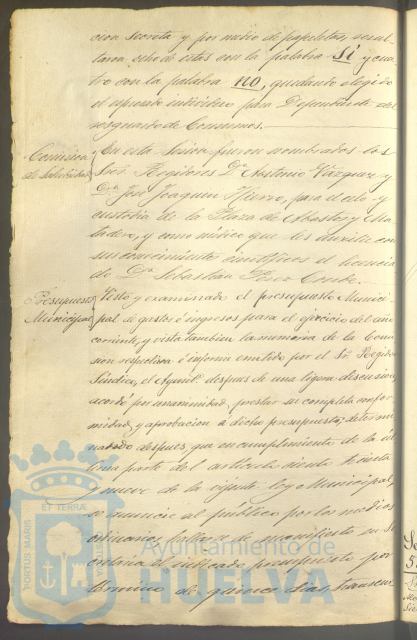 cion secreta y por medio de papeletas, resul-
taron ocho de estas con la palabra Si y cua-
tro con la palabra no, quedando elegido
el espresado individuo para Dependiente del
resguardo de Consumos.
Comision
de Salubridad
En esta Sesion fueron nombrados los
Sres. Regidores Dn. Antonio Vazquez y
Dn. Jose Joaquin Hierro, para el celo y
custodia de la Plaza de Abastos y Ma-
tadero, y como médico que les ausilie con
sus conocimientos cientificos el licencia-
do Dn. Sebastian Perez Conde.
Presupuesto
Municipal
Visto y examinado el presupuesto Munici-
pal de gastos é ingresos para el ejercicio del año
corriente, y vista tambien la memoria de la Comi-
sion respectiva é informe emitido por el Sr. Regidor
Síndico, el Ayunt.o despues de una ligera discusion,
acordó por unanimidad, prestar su completa confor-
midad, y aprobacion a dicho presupuesto; determi-
nandose despues, que en cumplimiento de la úl-
tima parte del articulo ciento treinta
y nueve de la vigente ley Municipal,
se anuncie al público por los medios
ordinarios, hallarse de manifiesto en Se-
cretaria el indicado presupuesto por
término de quince dias, transcur-
PORTUS MARIS
ET TERRÆ
CUSTODIA
Ayuntamiento de
HUELVA